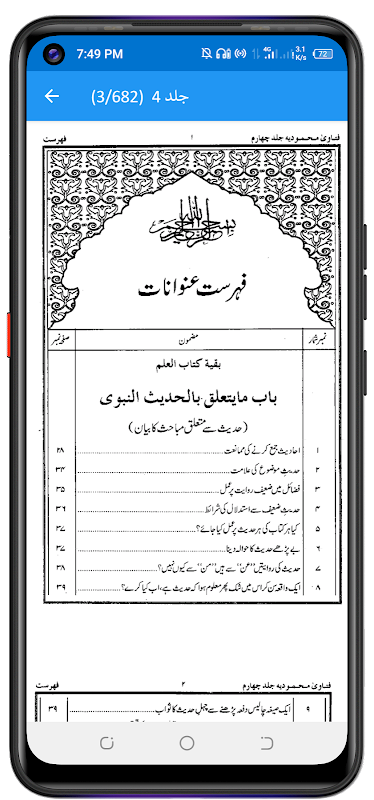 7:49 PM
4G
3.1 K/s
72
جلد 4 (3/682)
فتاویٰ محمودیہ جلد چہارم ۱ فہرست
بسم اللہ الرحمن الرحیم
فہرست عنوانات
نمبر شمار مضمون صفحہ نمبر
بقية كتاب العلم
باب مايتعلق بالحديث النبوى
(حدیث سے متعلق مباحث کا بیان)
۱ احادیث جمع کرنے کی ممانعت ۲۸
۲ حدیثِ موضوع کی علامت ۳۴
۳ فضائل میں ضعیف روایت پر عمل ۳۵
۴ حدیثِ ضعیف سے استدلال کی شرائط ۳۶
۵ کیا ہر کتاب کی ہر حدیث پر عمل کیا جائے؟ ۳۷
۶ بے پڑھے حدیث کا حوالہ دینا ۳۷
۷ حدیث کی روایتیں "عن" سے ہیں "من" سے کیوں نہیں؟ ۳۸
۸ ایک واقعہ سن کر اس میں شک پھر معلوم ہوا کہ حدیث ہے، اب کیا کرے؟ ۳۹
فتاویٰ محمودیہ جلد چہارم ۲ فہرست
۹ ایک صیغہ چالیس دفعہ پڑھنے سے چہل حدیث کا ثواب ۳۹